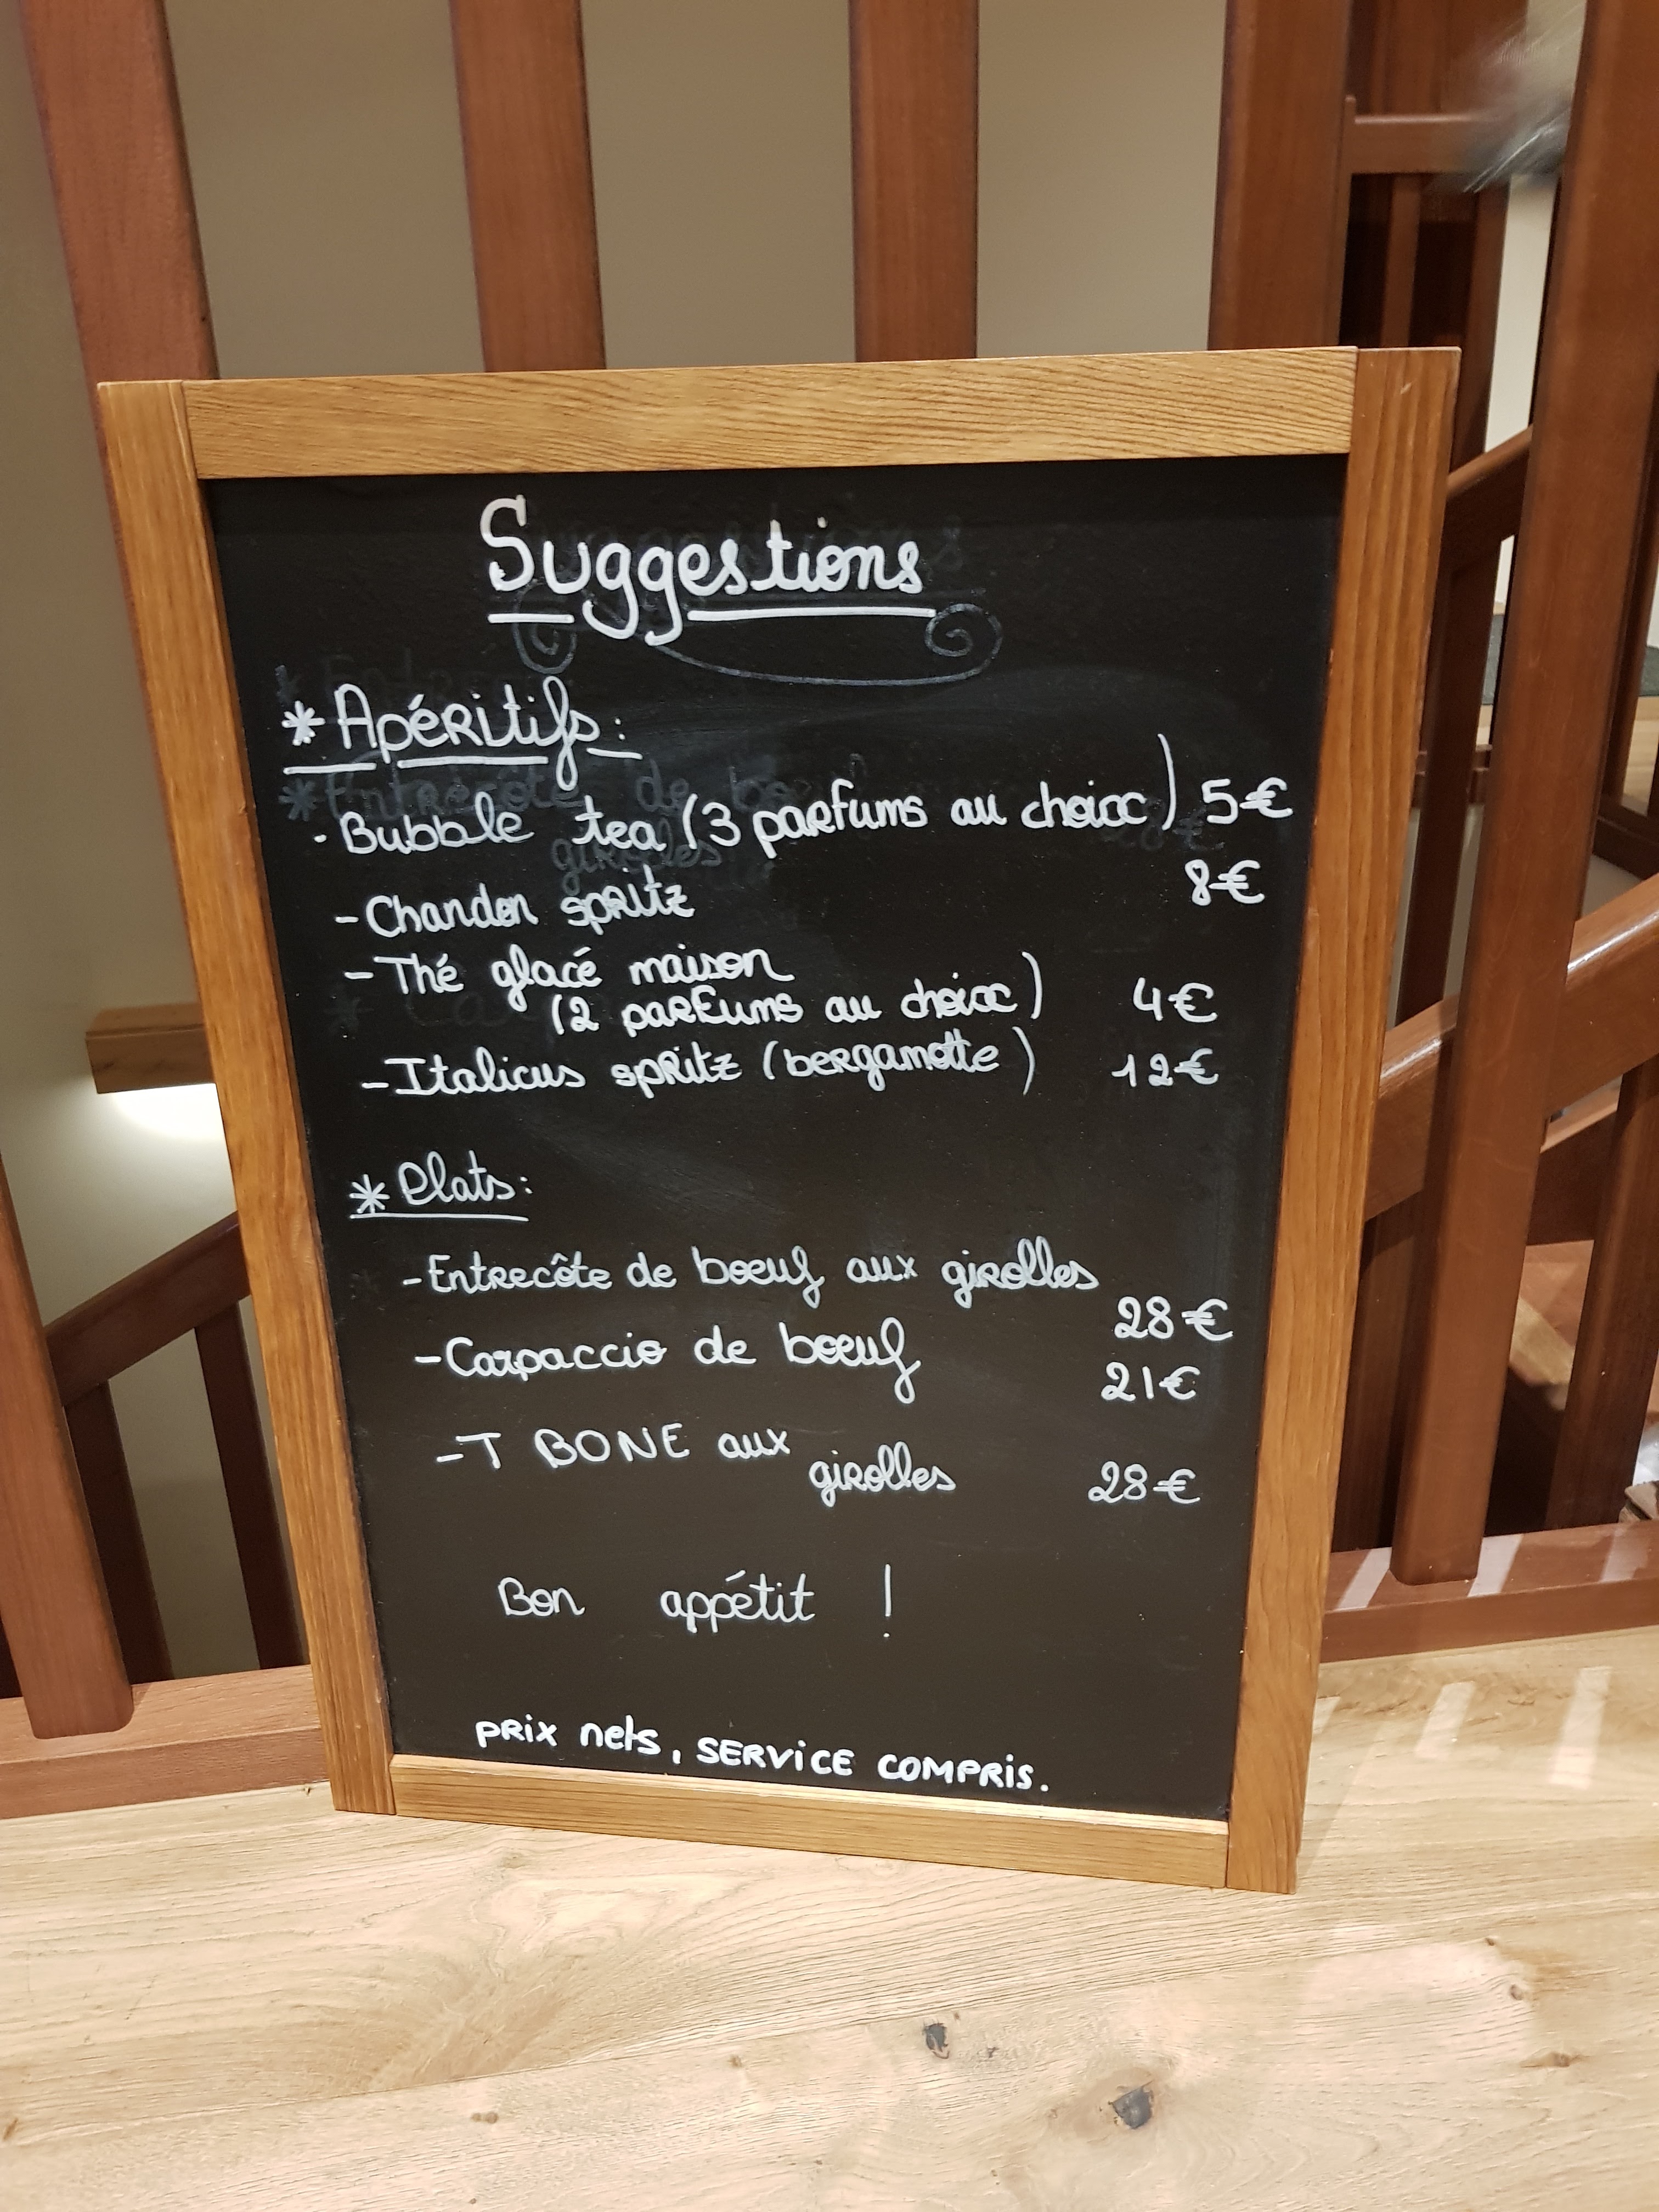 Suggestions
* Apéritifs:
- Bubble tea (3 parfums au choix) 5€
- Chandon spritz 8€
- Thé glacé maison
(2 parfums au choix) 4€
- Italicus spritz (bergamotte) 12€
* Plats:
- Entrecôte de boeuf aux girolles
28€
- Carpaccio de boeuf 21€
- T BONE aux
girolles 28€
Bon appétit !
PRIX nets, SERVICE COMPRIS.